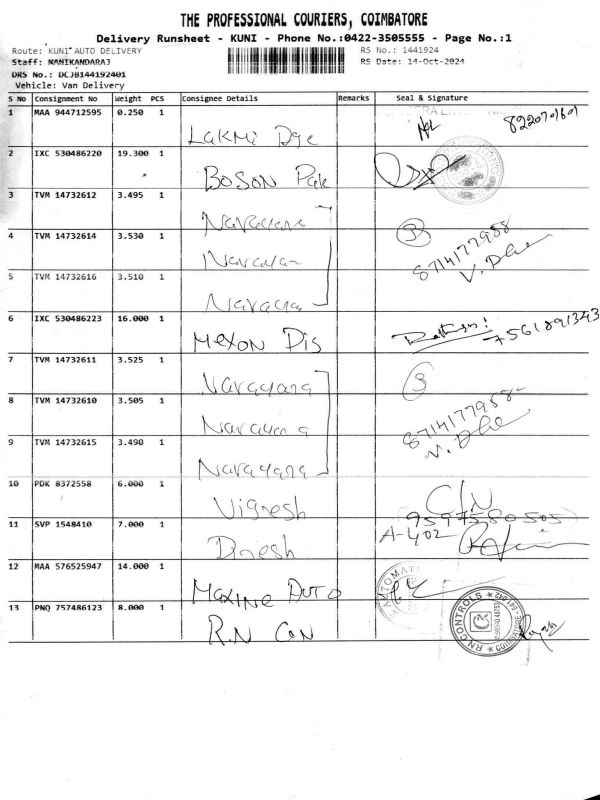 THE PROFESSIONAL COURIERS, COIMBATORE
Delivery Runsheet - KUNI - Phone No.:0422-3505555 - Page No.:1
Route: KUNI AUTO DELIVERY RS No.: 1441924
Staff: MANIKANDARAJ RS Date: 14-Oct-2024
DRS No.: DCJB144192401
Vehicle: Van Delivery
S No Consignment No Weight PCS Consignee Details Remarks Seal & Signature
1 MAA 944712595 0.250 1
Lakmi Dye
2 IXC 530486220 19.300 1
Boson Pak
3 TVM 14732612 3.495 1
Narayana
4 TVM 14732614 3.530 1 3
Narayan 8714177988
5 TVM 14732616 3.510 1 V.
Narayan
6 IXC 530486223 16.000 1
Mexon Dis 7561891343
7 TVM 14732611 3.525 1
Narayana 3
8 TVM 14732610 3.505 1
Narayana 8714177988
9 TVM 14732615 3.490 1 V.
Narayana
10 PDK 8372558 6.000 1
Vignesh C/N
9597580505
11 SVP 1548410 7.000 1 A-402
Dinesh
12 MAA 576525947 14.000 1
Maxine Auto
13 PNQ 757486123 8.000 1
R.N Con RN CONTROLS COIMBATORE